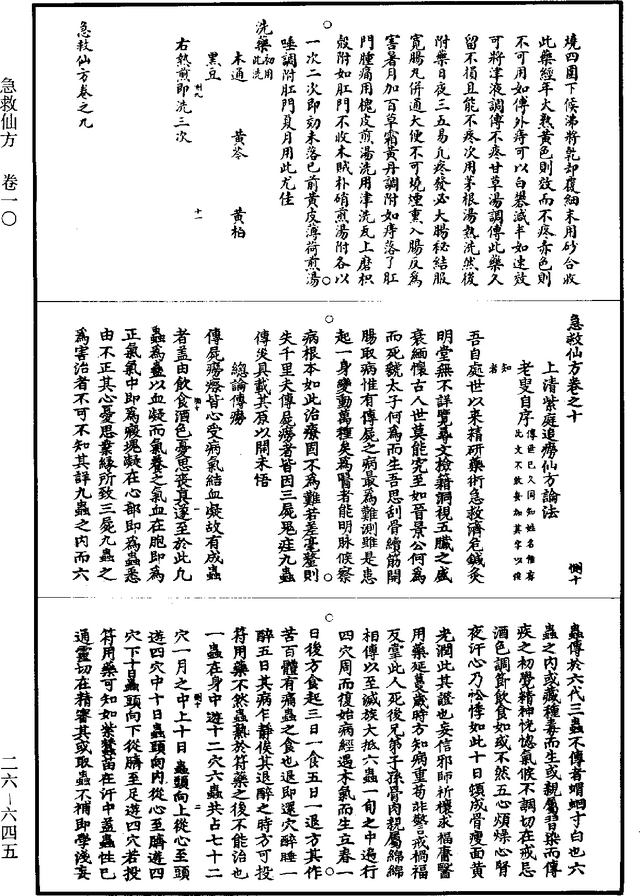 燒四圍下候沸將乾却覆細末用砂合收
此藥經年火熱黃色則效而不疼赤色則
不可用如傅外痔可以白礬減半如速效
可將津液調傅不疼甘草湯調傅此藥久
留不損且能不疼次用茅根湯熟洗然後
附藥日夜三五易凡疼發必大腸秘結服
寬腸丸併通大便不可燒煙熏入腸反為
害著月加百草霜黃丹調附如痔落了肛
門腫痛用槐皮煎湯洗用津洗瓦上磨枳
殼附如肛門不收末賊朴硝煎湯附各以
一次二次即効未落已前黃皮薄荷煎湯
唾調附肛門夏月用此尤佳
洗藥初用此洗
木通 黃芩 黃柏
黑豆
右熱煎即洗三次
急救仙方卷之九
急救仙方卷之十 惻十
上清紫庭追癆仙方論法
老叟自序 傳世已久同知姓名惟
此文不敢妄加其字以俟
知者
吾自處世以來精研藥術急救濟危鍼灸
明堂無不詳覽尋文檢籍洞視五臟之盛
衰緬懷古人世莫能究至如晉景公何為
而死虢太子何為而生吾思刮骨續筋開
腸取病惟有傳屍之病最為難測雖是患
起一身變動萬種矣為醫者能明脉候察
病根本如此治療因不為難若差毫釐則
失千里夫傳屍癆者皆因三屍鬼疰九蟲
傳災具載其原以開未悟
總論傳癆
傳屍癆瘵皆心受病氣結血凝故有成蟲
者蓋由飲食酒色憂思喪真遂至於此九
蟲為蠱以血凝而氣養之氣血在胞即為
正氣氣中即為癥塊凝在心部即為蟲悉
由不正其心憂思業緣所致三屍九蟲之
為害治者不可不知其詳九蟲之內而六
蟲傳於六代三蟲不傳者蝟蛔寸白也六
蟲之內或藏種毒而生或親屬習染而傳
疾之初覺精神恍惚氣候不調切在戒忌
酒色調節飲食如或不然五心煩燥心腎
夜汗心乃忪悸如此十日頓成骨瘦面黃
光潤此其證也妄信邪師祈禳求福庸醫
用藥延蔓歲時方知病重苟非警戒禍福
反掌此人死後兄弟子孫骨肉親屬綿綿
相傳以至滅族大抵六蟲一旬之中遍行
四穴周而復始病經遇木氣而生立春一
日後方食起三日一食五日一退方其作
苦百體有痛蟲之食也退即還穴醉睡一
醉五日其病乍靜俟其退醉之時方可投
符用藥不然蟲熱於符藥之後不能治也
一蟲在身中遊十二穴六蟲共占七十二
穴一月之中上十日蟲頭向上從心至頭
遊四穴中十日蟲頭向內從心至臍遊四
穴下十日蟲頭向下從臍至足遊四穴若投
符用藥可知如紫蠶苗在汗中蓋蟲性已
通靈切在精審其或取蟲不補即學淺妄
急救仙方 卷一〇
二六—六四五